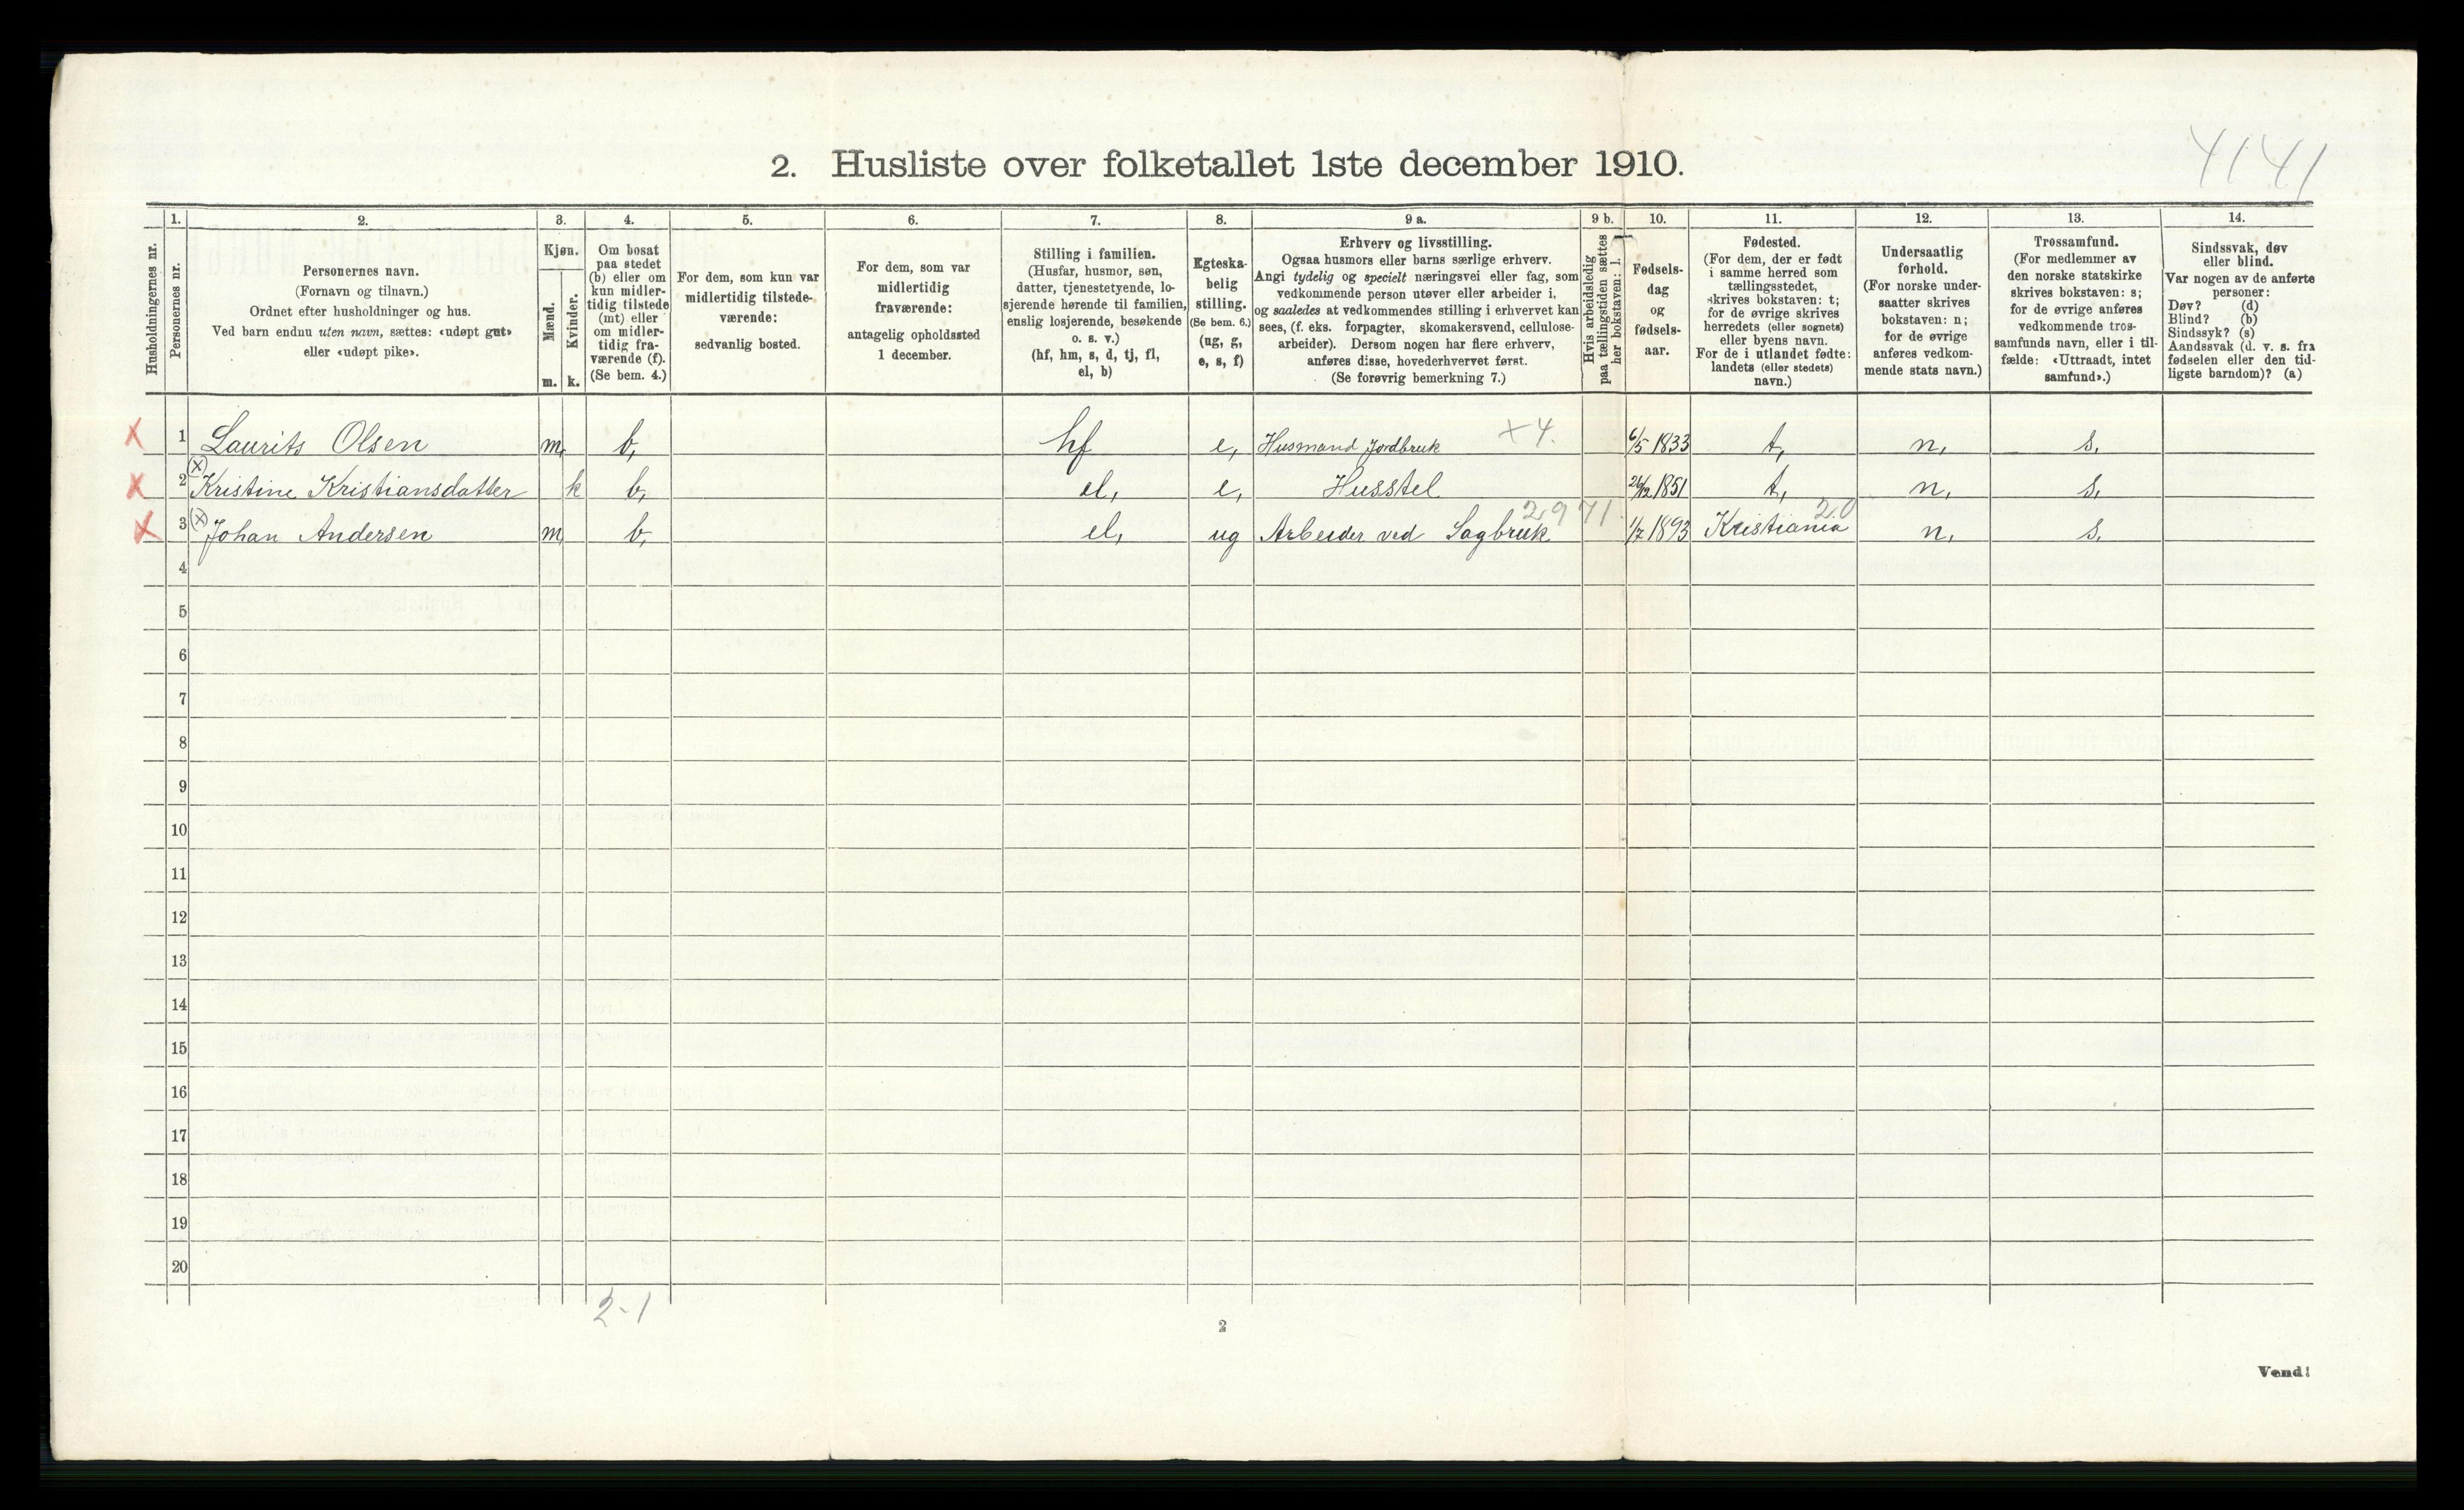 4141
2. Husliste over folketallet 1ste december 1910.
Husholdningernes nr.
1.
Personernes nr.
2.
Personernes navn.
(Fornavn og tilnavn.)
Ordnet efter husholdninger og hus.
Ved barn endnu uten navn, sættes: «udøpt gut»
eller «udøpt pike».
3.
Kjøn.
Mænd.
Kvinder.
m.
k.
4.
Om bosat
paa stedet
(b) eller om
kun midler-
tidig tilstede
(mt) eller
om midler-
tidig fra-
værende (f).
(Se bem. 4.)
5.
For dem, som kun var
midlertidig tilstede-
værende:
sedvanlig bosted.
6.
For dem, som var
midlertidig
fraværende:
antagelig opholdssted
1 december.
7.
Stilling i familien.
(Husfar, husmor, søn,
datter, tjenestetyende, lo-
sjerende hørende til familien,
enslig losjerende, besøkende
o. s. v.)
(hf, hm, s, d, tj, fl,
el, b)
8.
Egteska-
belig
stilling.
(Se bem. 6.)
(ug, g,
e, s, f)
9 a.
Erhverv og livsstilling.
Ogsaa husmors eller barns særlige erhverv.
Angi tydelig og specielt næringsvei eller fag, som
vedkommende person utøver eller arbeider i,
og saaledes at vedkommendes stilling i erhvervet kan
sees, (f. eks. forpagter, skomakersvend, cellulose-
arbeider). Dersom nogen har flere erhverv,
anføres disse, hovederhvervet først.
(Se forøvrig bemerkning 7.)
9 b.
Hvis arbeidsledig
paa tællingstiden sættes
her bokstaven: l.
10.
Fødsels-
dag
og
fødsels-
aar.
11.
Fødested.
(For dem, der er født
i samme herred som
tællingsstedet,
skrives bokstaven: t;
for de øvrige skrives
herredets (eller sognets)
eller byens navn.
For de i utlandet fødte:
landets (eller stedets)
navn.)
12.
Undersaatlig
forhold.
(For norske under-
saatter skrives
bokstaven: n;
for de øvrige
anføres vedkom-
mende stats navn.)
13.
Trossamfund.
(For medlemmer av
den norske statskirke
skrives bokstaven: s;
for de øvrige anføres
vedkommende tros-
samfunds navn, eller i til-
fælde: «Uttraadt, intet
samfund».)
14.
Sindssvak, døv
eller blind.
Var nogen av de anførte
personer:
Døv? (d)
Blind? (b)
Sindssyk? (s)
Aandssvak (d. v. s. fra
fødselen eller den tid-
ligste barndom)? (a)
x 1 Laurits Olsen m, b, hf e, Husmand Jordbruk x 4. 6/5 1833 t, n, s,
x 2 (x) Kristine Kristiansdatter k b, el, e, Husstel 26/12 1851 t, n, s,
2971. 20
x 3 (x) Johan Andersen m, b, el, ug Arbeider ved Sagbruk 1/7 1893 Kristiania n, s,
4
5
6
7
8
9
10
11
12
13
14
15
16
17
18
19
20
2-1
2
Vend!